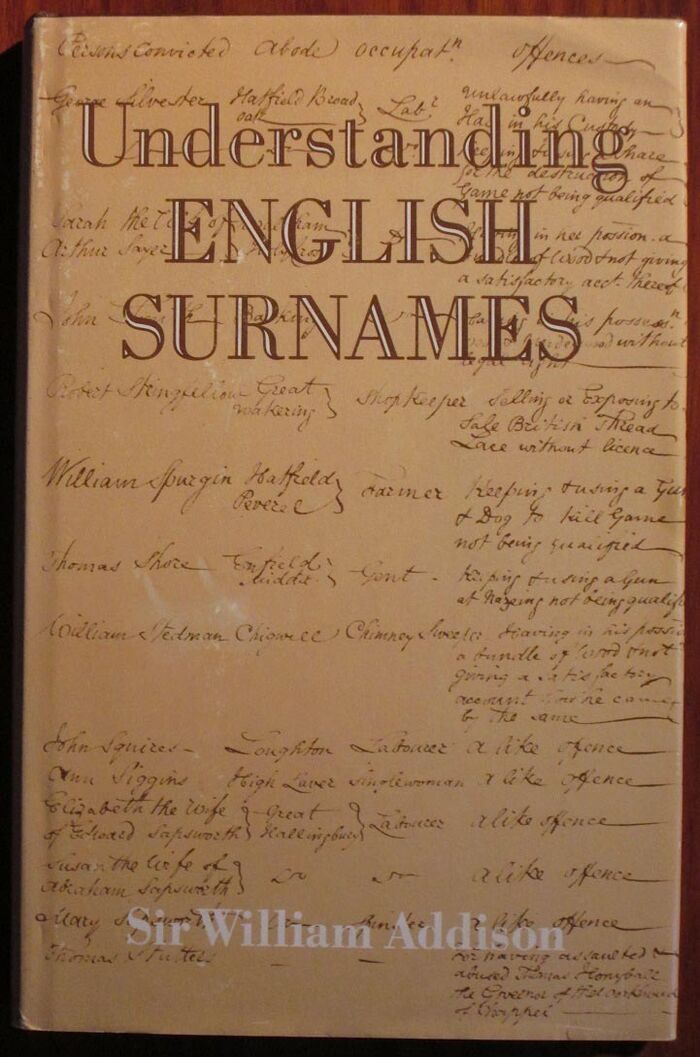 Persons Convicted Abode Occupatn. Offences
George Silvester Hatfield Broad oak Labr Unlawfully having an
in his Custody
Understanding
for the destruction of
Game not being qualified
Sarah the Wife of
Arthur Sayer in her possion. a
of Wood & not giving
a satisfactory acct. thereof
ENGLISH
John his possesn.
without
SURNAMES
Robert Great Wakering Shopkeeper Selling or Exposing to
Sale British Thread
Lace without licence
William Spurgin Hatfield Peverel Farmer Keeping & using a Gun
& Dog to kill Game
not being qualified
Thomas Shore Enfield Middx. Gent Keeping & using a Gun
at Nazeing not being qualifi
William Stedman Chigwell Chimney Sweeper Having in his possi
a bundle of Wood & not
giving a satisfactory
account how he came
by the same
John Squires Loughton Labourer a like offence
Ann Siggins High Laver Singlewoman a like offence
Elizabeth the Wife
of Edward Sapsworth Great Hallingbury Labourer a like offence
Susan the Wife of
Abraham Sapsworth a like offence
Mary a like offence
Sir William Addison
Thomas Stutters for having assaulted &
abused Thomas
the Governor of